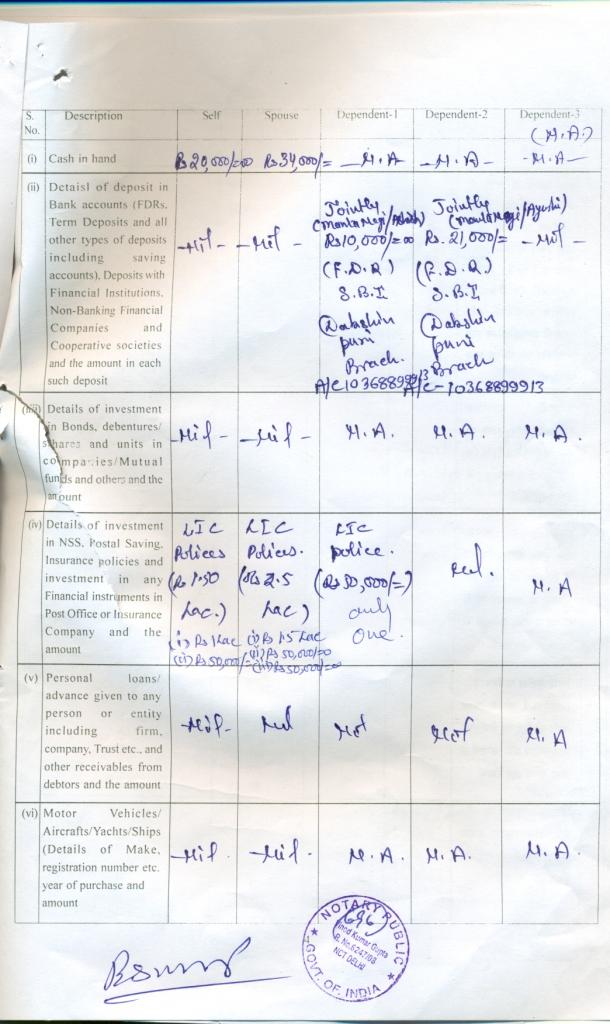 S. No. Description Self Spouse Dependent-1 Dependent-2 Dependent-3
(N.A.)
(i) Cash in hand Rs 20,000/=00 Rs 34,000/= — N.A — N.A — - N.A —
(ii) Detaisl of deposit in
Bank accounts (FDRs,
Term Deposits and all
other types of deposits
including saving
accounts), Deposits with
Financial Institutions,
Non-Banking Financial
Companies and
Cooperative societies
and the amount in each
such deposit
- Nil -
- Nil -
Jointly
Rs 10,000/=00
(F.D.R)
S.B.I
Dakshin
puri
Brach.
A/C 10368899913
Jointly
Rs. 21,000/=
(F.D.R.)
S.B.I
(Dakshin
puri
Brach
A/C-10368899913
- Nil -
(iii) Details of investment
in Bonds, debentures/
shares and units in
companies/Mutual
funds and others and the
amount
- Nil - - Nil - N.A. N.A. N.A.
(iv) Details of investment
in NSS, Postal Saving,
Insurance policies and
investment in any
Financial instruments in
Post Office or Insurance
Company and the
amount
LIC
Polices
(Rs 1.50
Lac.)
(i) Rs 1 Lac
(ii) Rs 50,000/=
LIC
Polices.
(Rs 2.5
Lac)
(i) Rs 1.5 Lac
(ii) Rs 50,000/=0
(iii) Rs 50,000/=00
LIC
police.
(Rs 50,000/=)
only
one.
nil.
N.A
(v) Personal loans/
advance given to any
person or entity
including firm,
company, Trust etc., and
other receivables from
debtors and the amount
- Nil - Nil N.A
(vi) Motor Vehicles/
Aircrafts/Yachts/Ships
(Details of Make,
registration number etc.
year of purchase and
amount
- Nil - - Nil - N.A. N.A. N.A.
NOTARY PUBLIC
Vinod Kumar Gupta
NCT DELHI
GOVT. OF INDIA